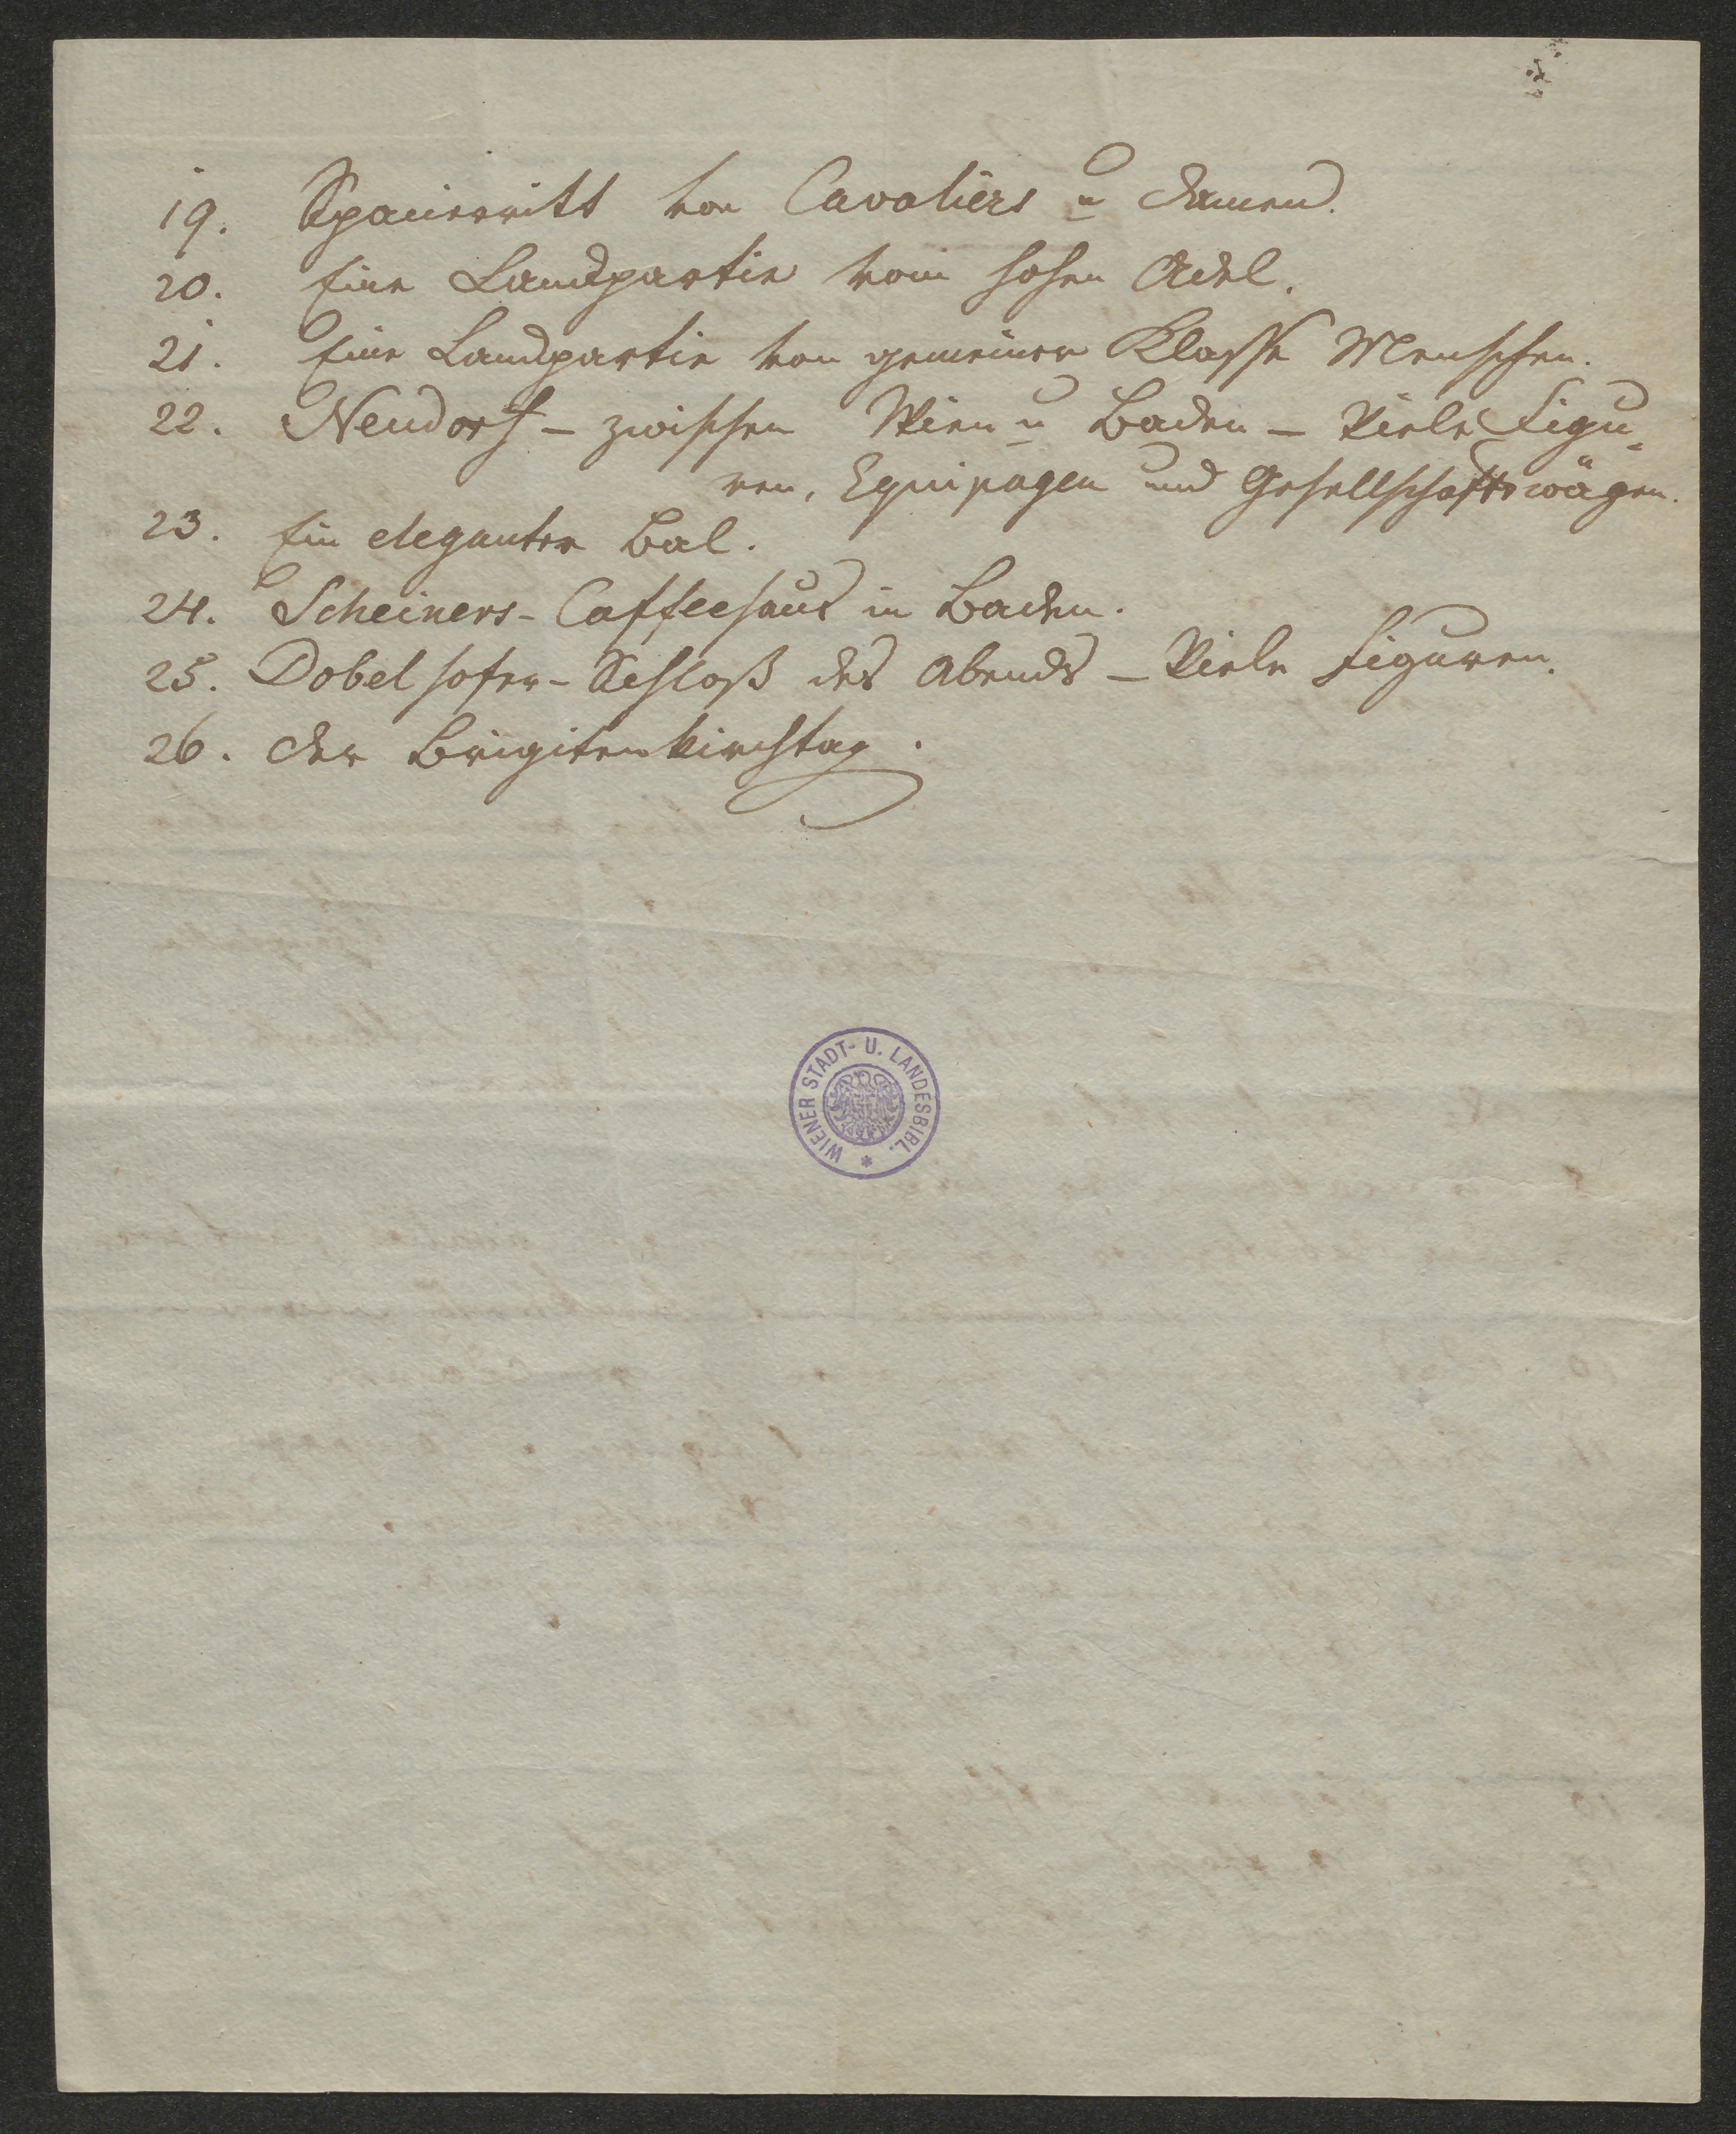 19. Spazierritt von Cavaliers u Damen.
20. Eine Landpartie vom hohen Adel.
21. Eine Landpartie von gemeiner Klasse Menschen.
22. Neudorf – zwischen Wien u Baden – Viele Figu=
ren, Equipagen und Gesellschaftswägen.
23. Ein eleganter Bal.
24. Scheiners-Caffeehaus in Baden.
25. Dobelhofer-Schloß des Abends – Viele Figuren.
26. Der Brigitenkirchtag.
WIENER STADT- U. LANDESBIBL. *